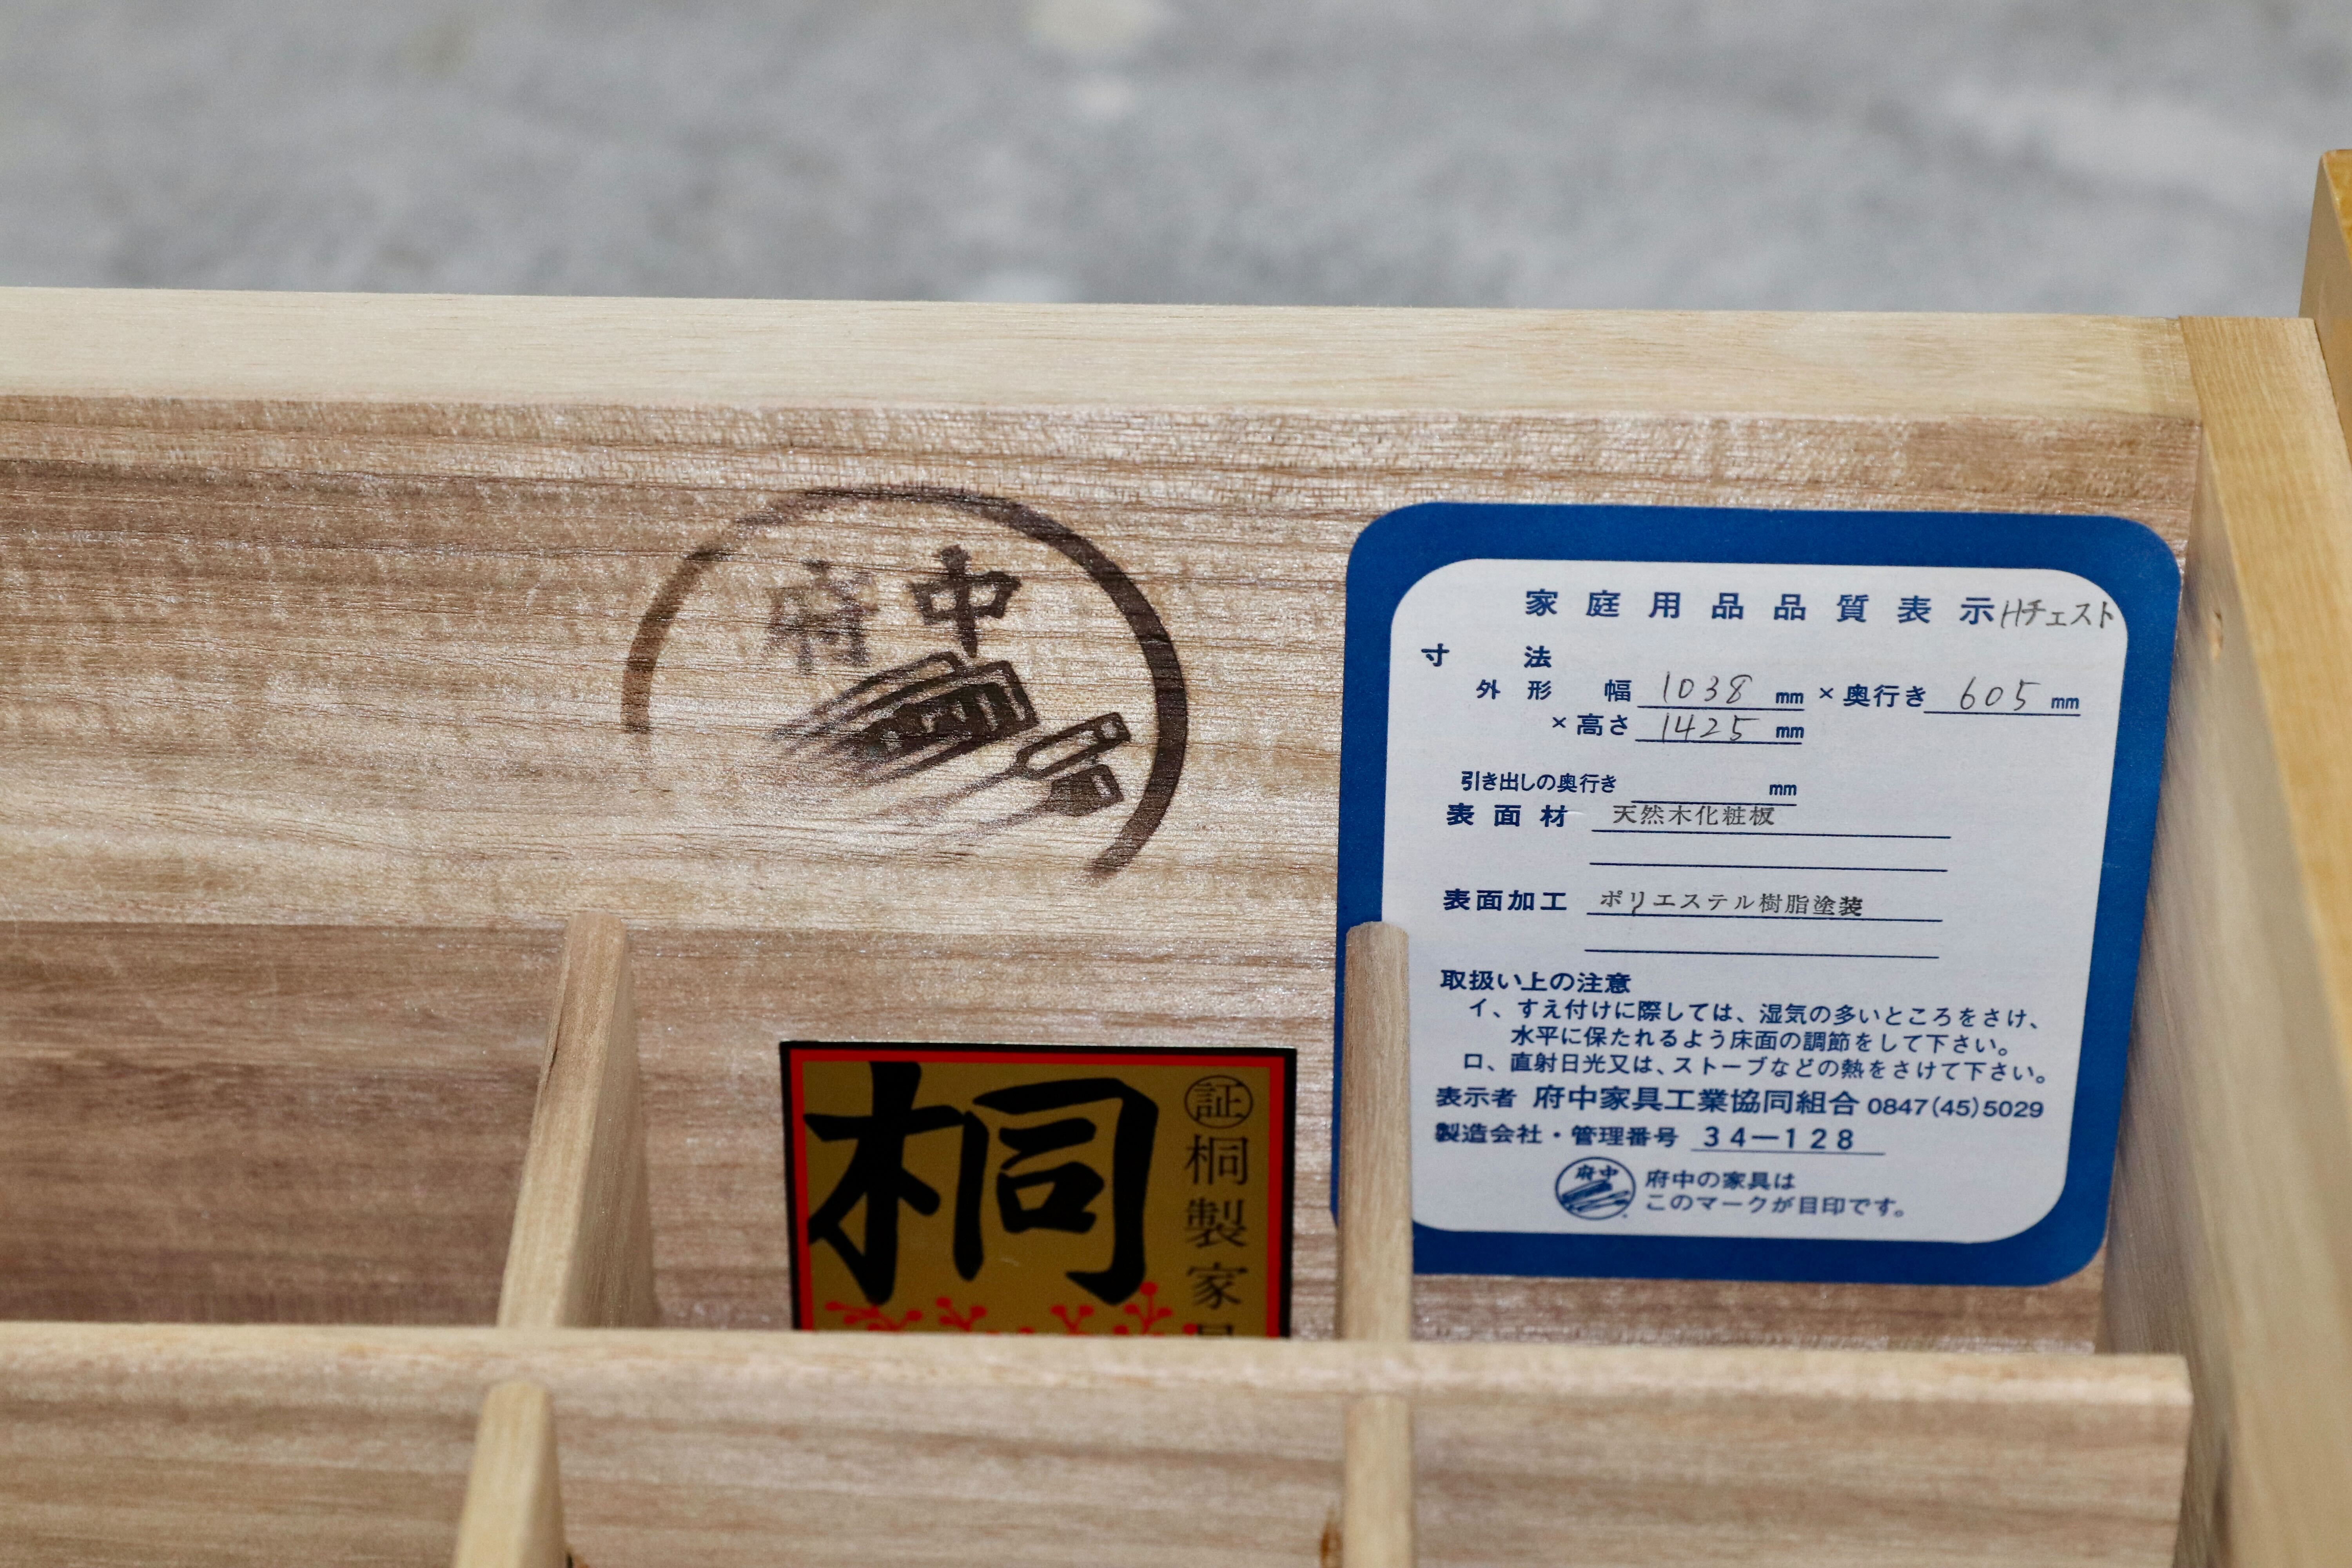 府中
家庭用品品質表示 Hチェスト
寸法
外形 幅 1038 mm × 奥行き 605 mm
× 高さ 1425 mm
引き出しの奥行き mm
表面材 天然木化粧板
表面加工 ポリエステル樹脂塗装
取扱い上の注意
イ、すえ付けに際しては、湿気の多いところをさけ、
水平に保たれるよう床面の調節をして下さい。
ロ、直射日光又は、ストーブなどの熱をさけて下さい。
表示者 府中家具工業協同組合 0847(45)5029
製造会社・管理番号 34—128
府中
府中の家具は
このマークが目印です。
桐
証
桐製家